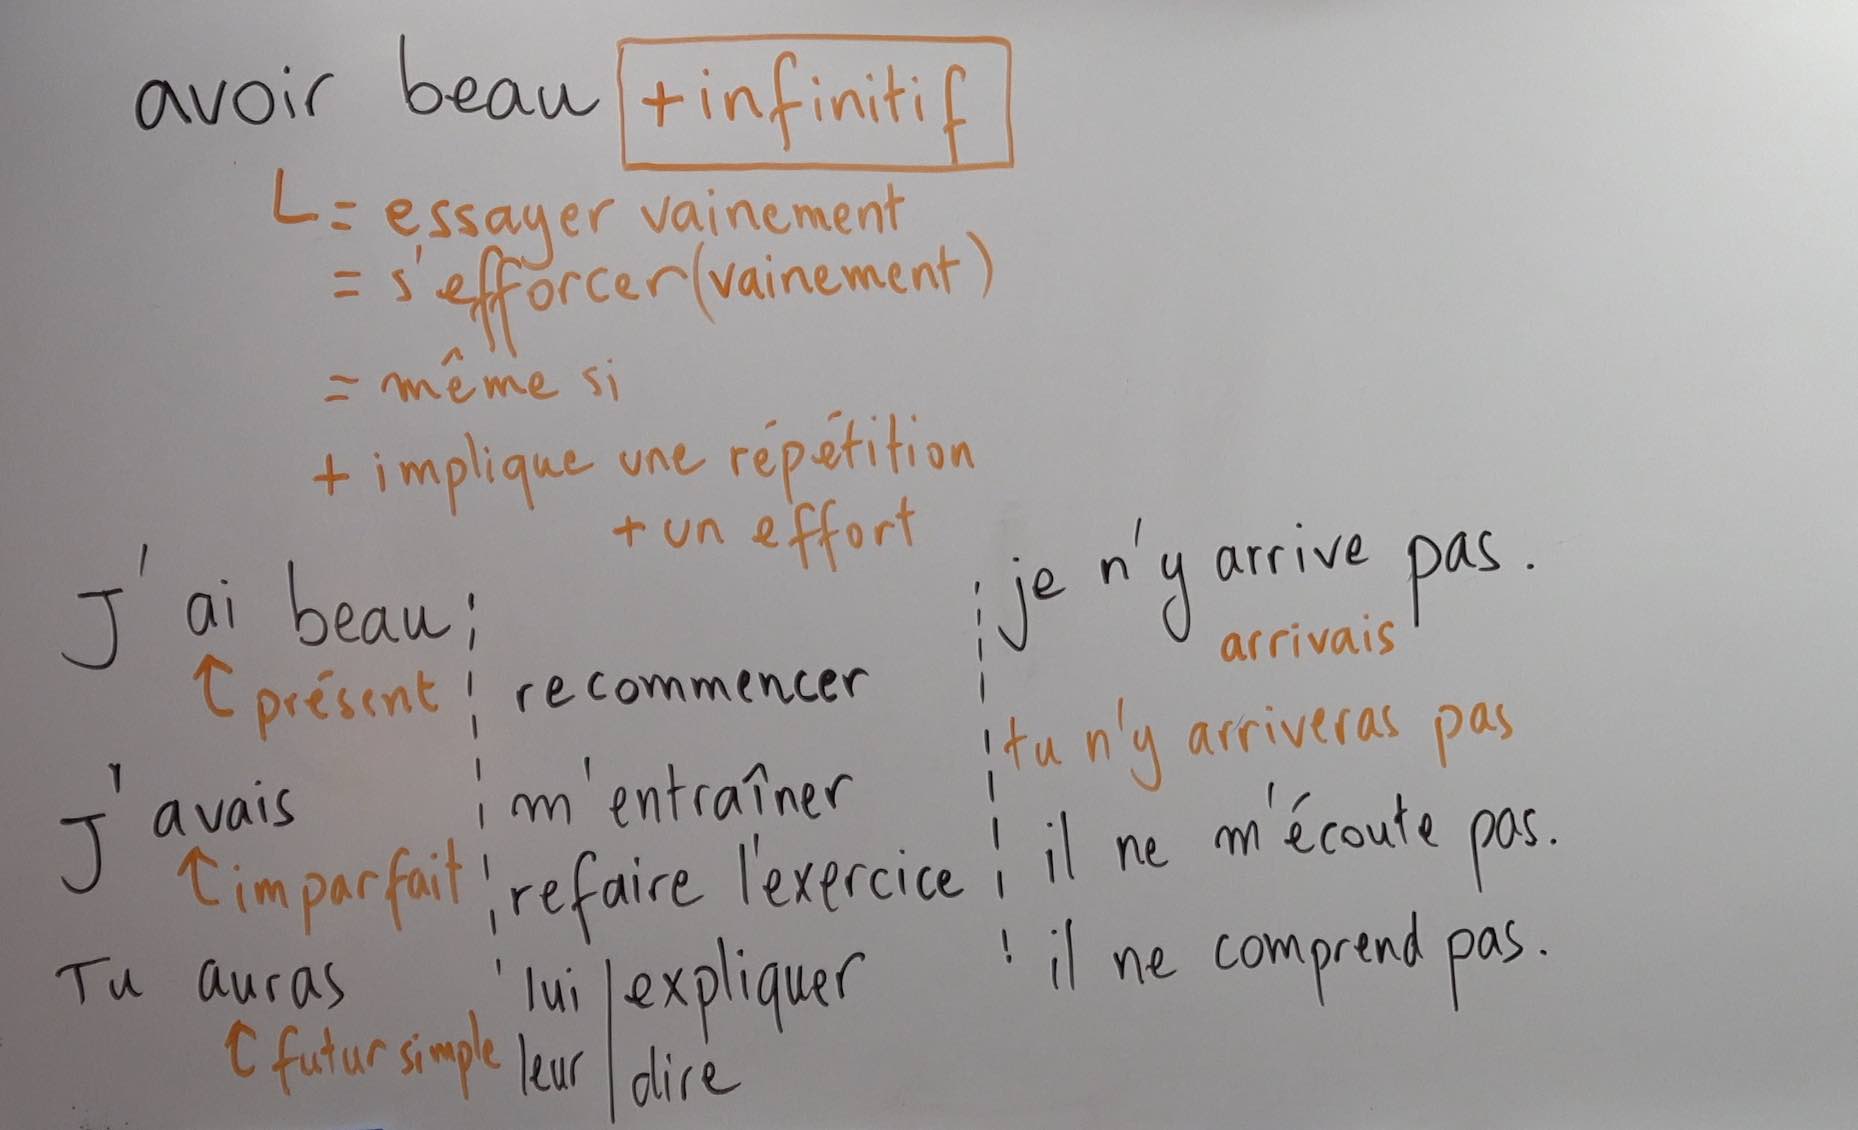 avoir beau + infinitif
= essayer vainement
= s'efforcer (vainement)
= même si
+ implique une répétition
+ un effort
J'ai beau
présent
J'avais
imparfait
Tu auras
futur simple
recommencer
m'entraîner
refaire l'exercice
lui expliquer
leur dire
je n'y arrive pas.
arrivais
tu n'y arriveras pas
il ne m'écoute pas.
il ne comprend pas.